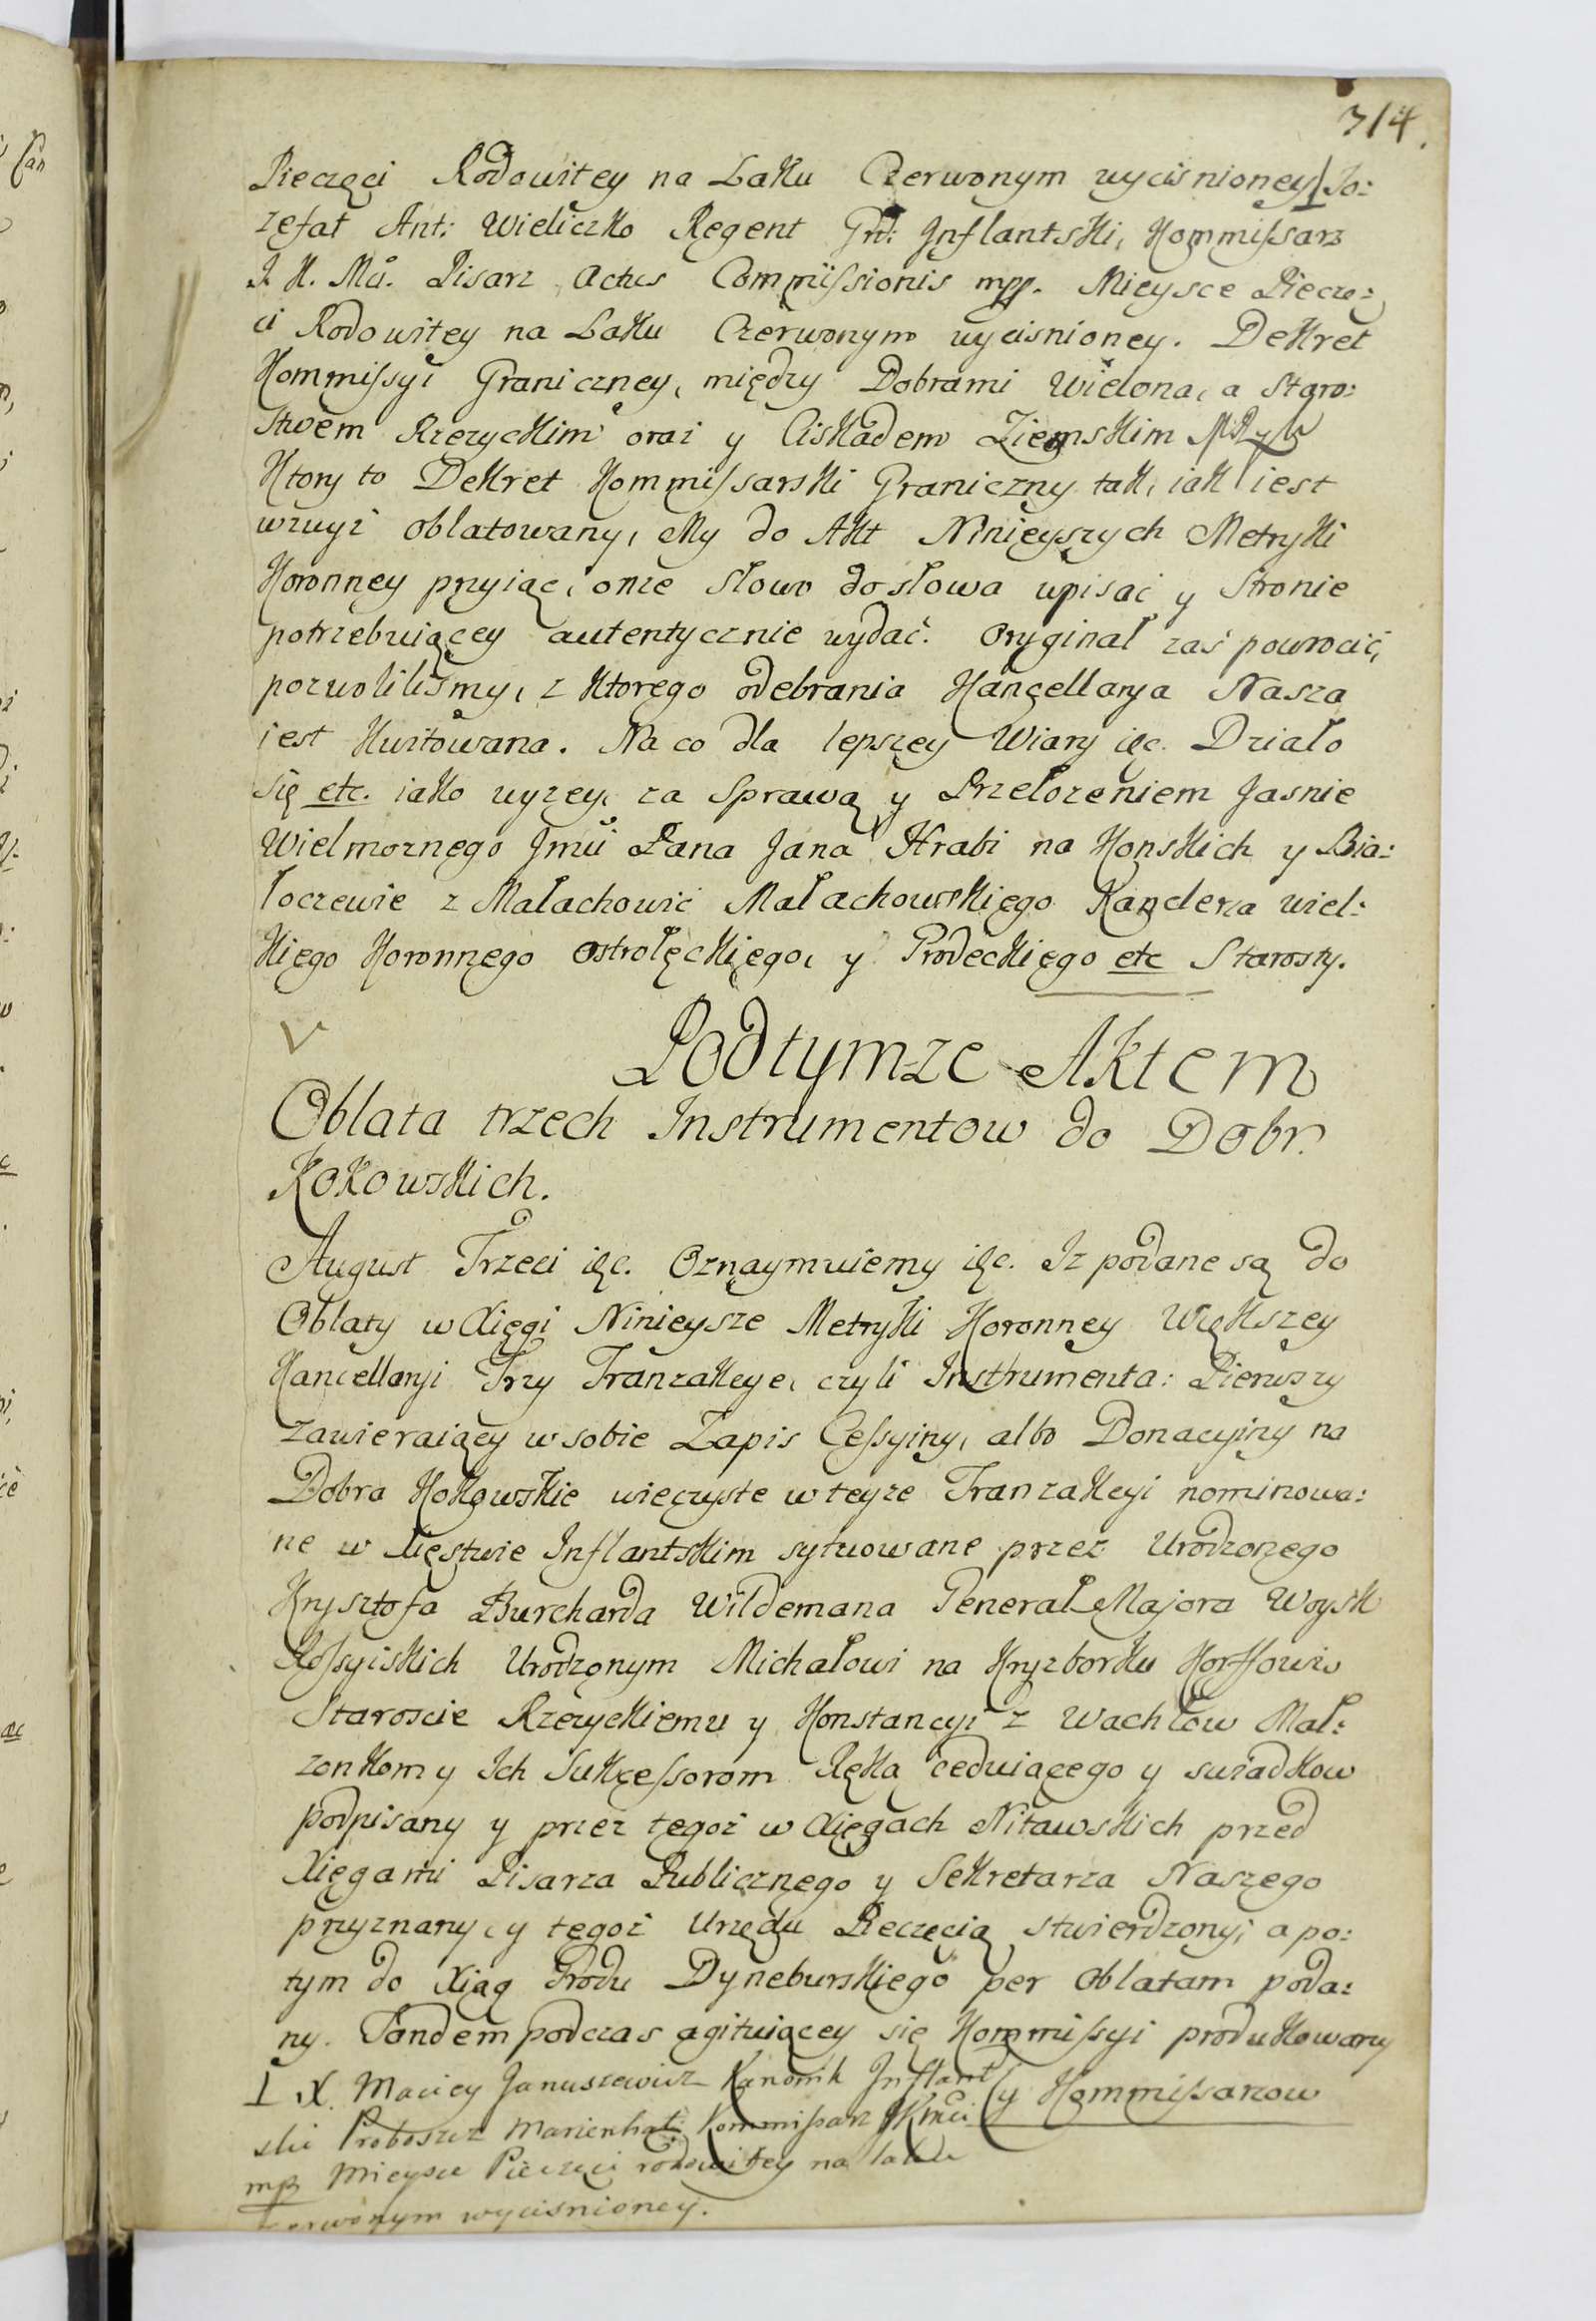 314.
Pieczęci Rodowitey na Laku Czerwonym wycisnioney Jo:
zefat Ant: Wieliczko Regent Grd: Inflantski, Kommissarz
J. K. Mci. Pisarz Actus Commissionis mpp. Mieysce Piecze:
ci Rodowitey na Laku Czerwonym wycisnioney. Dekret
Kommissyi Graniczney, między Dobrami Wielona, a Staro:
stwem Rzezyckim oraz y Ciskadem Ziemskim
Ktory to Dekret Kommissarski Graniczny tak, iak iest
wzwyż oblatowany, My do Akt Ninieyszych Metryki
Koronney przyiąć, onze słowo do słowa wpisać y Stronie
potrzebuiącey autentycznie wydać. Oryginał zaś powrocić,
pozwoliliśmy, z Ktorego odebrania Kancellarya Nasza
iest Kwitowana. Na co dla lepszey Wiary ięc. Działo
się etc. iako wyzey, za Sprawą y Przełozeniem Jasnie
Wielmoznego Jmci Pana Jana Hrabi na Konskich y Bia:
łoczewie z Małachowic Małachowskiego Kanclerza wiel:
kiego Koronnego Ostrołęckiego, y Grodeckiego etc Starosty.
V
Pod tymze Aktem
Oblata trzech Instrumentow do Dobr
Kokowskich.
August Trzeci ięc. Oznaymuiemy ięc. Iz podane są do
Oblaty w Xięgi Ninieysze Metryki Koronney Większey
Kancellaryi Trzy Tranzakcye, czyli Instrumenta: Pierwszy
zawieraiący w sobie Zapis Cessyiny, albo Donacyiny na
Dobra Kokowskie wieczyste w teyze Tranzakcyi nominowa:
ne w Xięstwie Inflantskim sytuowane przez Urodzonego
Krysztofa Burcharda Wildemana Generał Majora Woysk
Rossyiskich Urodzonym Michałowi na Kryzborku Korffowi
Staroscie Rzezyckiemu y Konstancyi z Wachlow Mał:
zonkom y Ich Sukcessorom Ręką ceduiącego y swiadkow
podpisany y przez tegoż w Xięgach Mitawskich przed
Xięgami Pisarza Publicznego y Sekretarza Naszego
przyznany, y tegoż Urzędu Pieczęcią stwierdzony; a po:
tym do Xiąg Grodu Dyneburskiego per Oblatam poda:
ny. Tandem podczas agituiącey się Kommissyi produkowany
y Kommissarzow
X. Maciey Januszewicz Kanonik Inflant
ski Proboszcz Marienhat: Kommissarz JKMci
mp Mieysce Pieczęci rodowitey na laku
czerwonym wycisnioney.